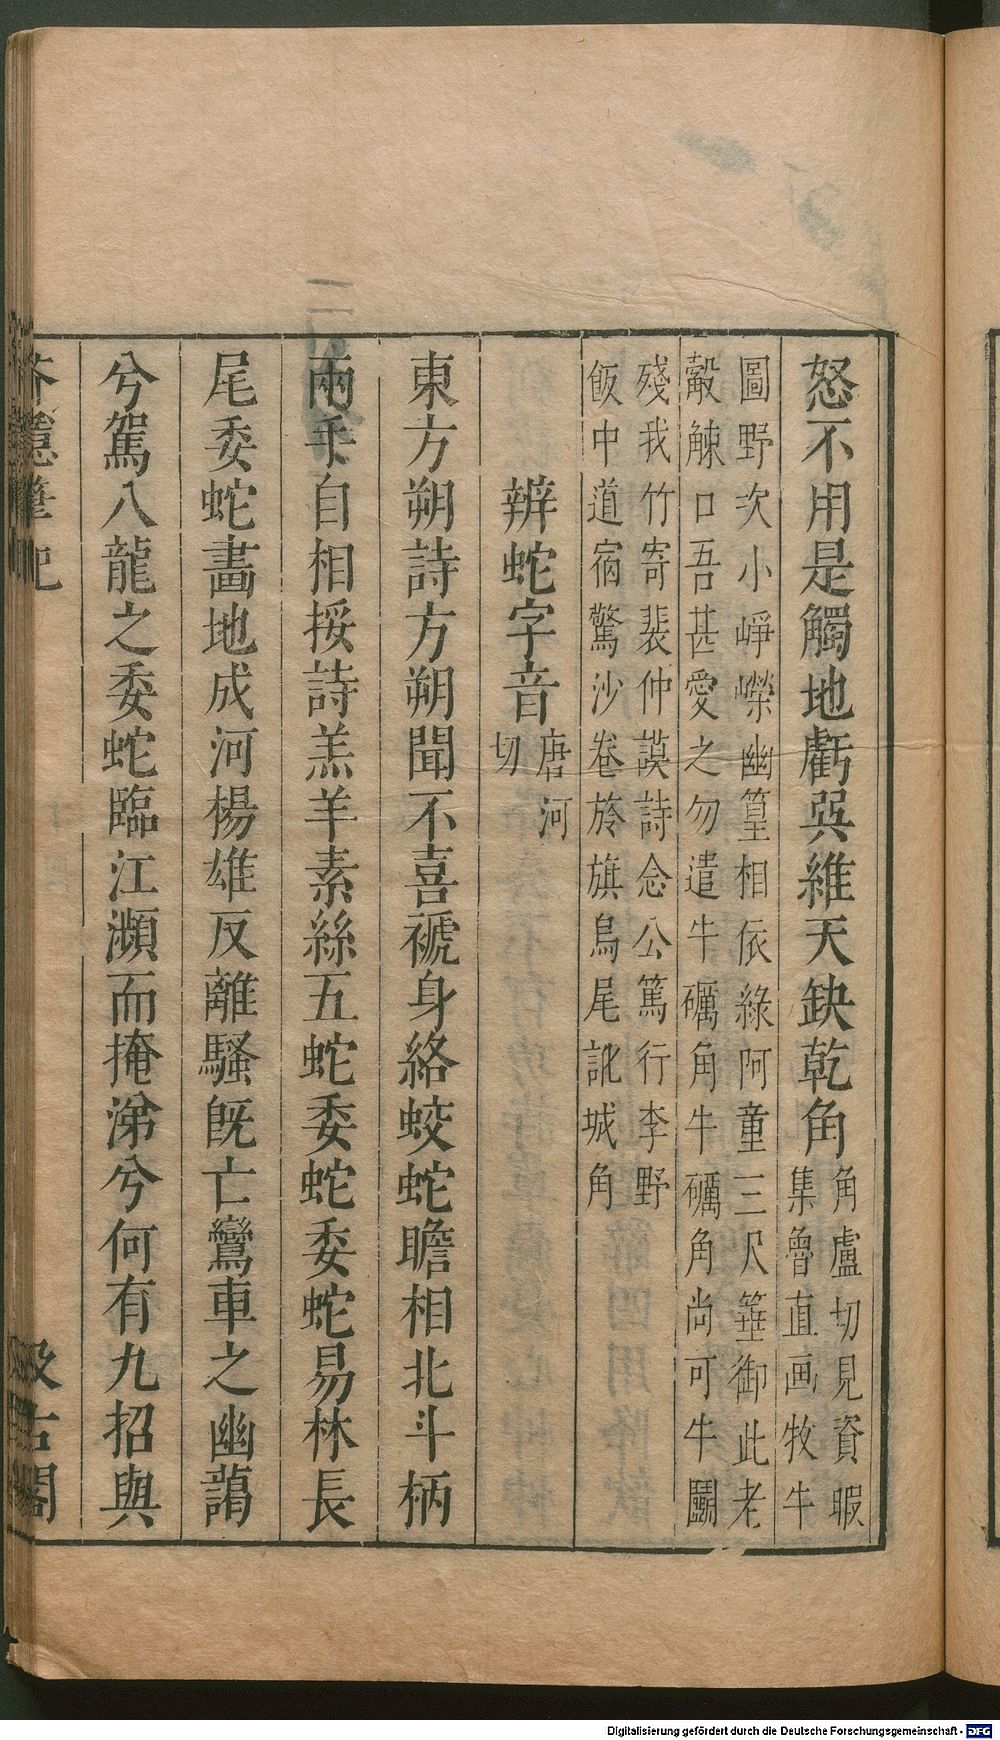 怒不用是觸地虧巽維天缺乾角角盧切見資暇
集魯直画牧牛
圖野次小崢嶸幽篁相依綠阿童三尺箠御此老
觳觫口吾甚愛之勿遣牛礪角牛礪角尚可牛鬭
殘我竹寄裴仲謨詩念公篤行李野
飯中道宿驚沙卷旍旗鳥尾訛城角
辨蛇字音唐河
切
東方朔詩方朔聞不喜褫身絡蛟蛇瞻相北斗柄
兩手自相挼詩羔羊素絲五蛇委蛇委蛇易林長
尾委蛇畫地成河楊雄反離騷旣亡鸞車之幽藹
兮駕八龍之委蛇臨江瀕而掩涕兮何有九招與
芥隱筆記
汲古閣
Digitalisierung gefördert durch die Deutsche Forschungsgemeinschaft - DFG